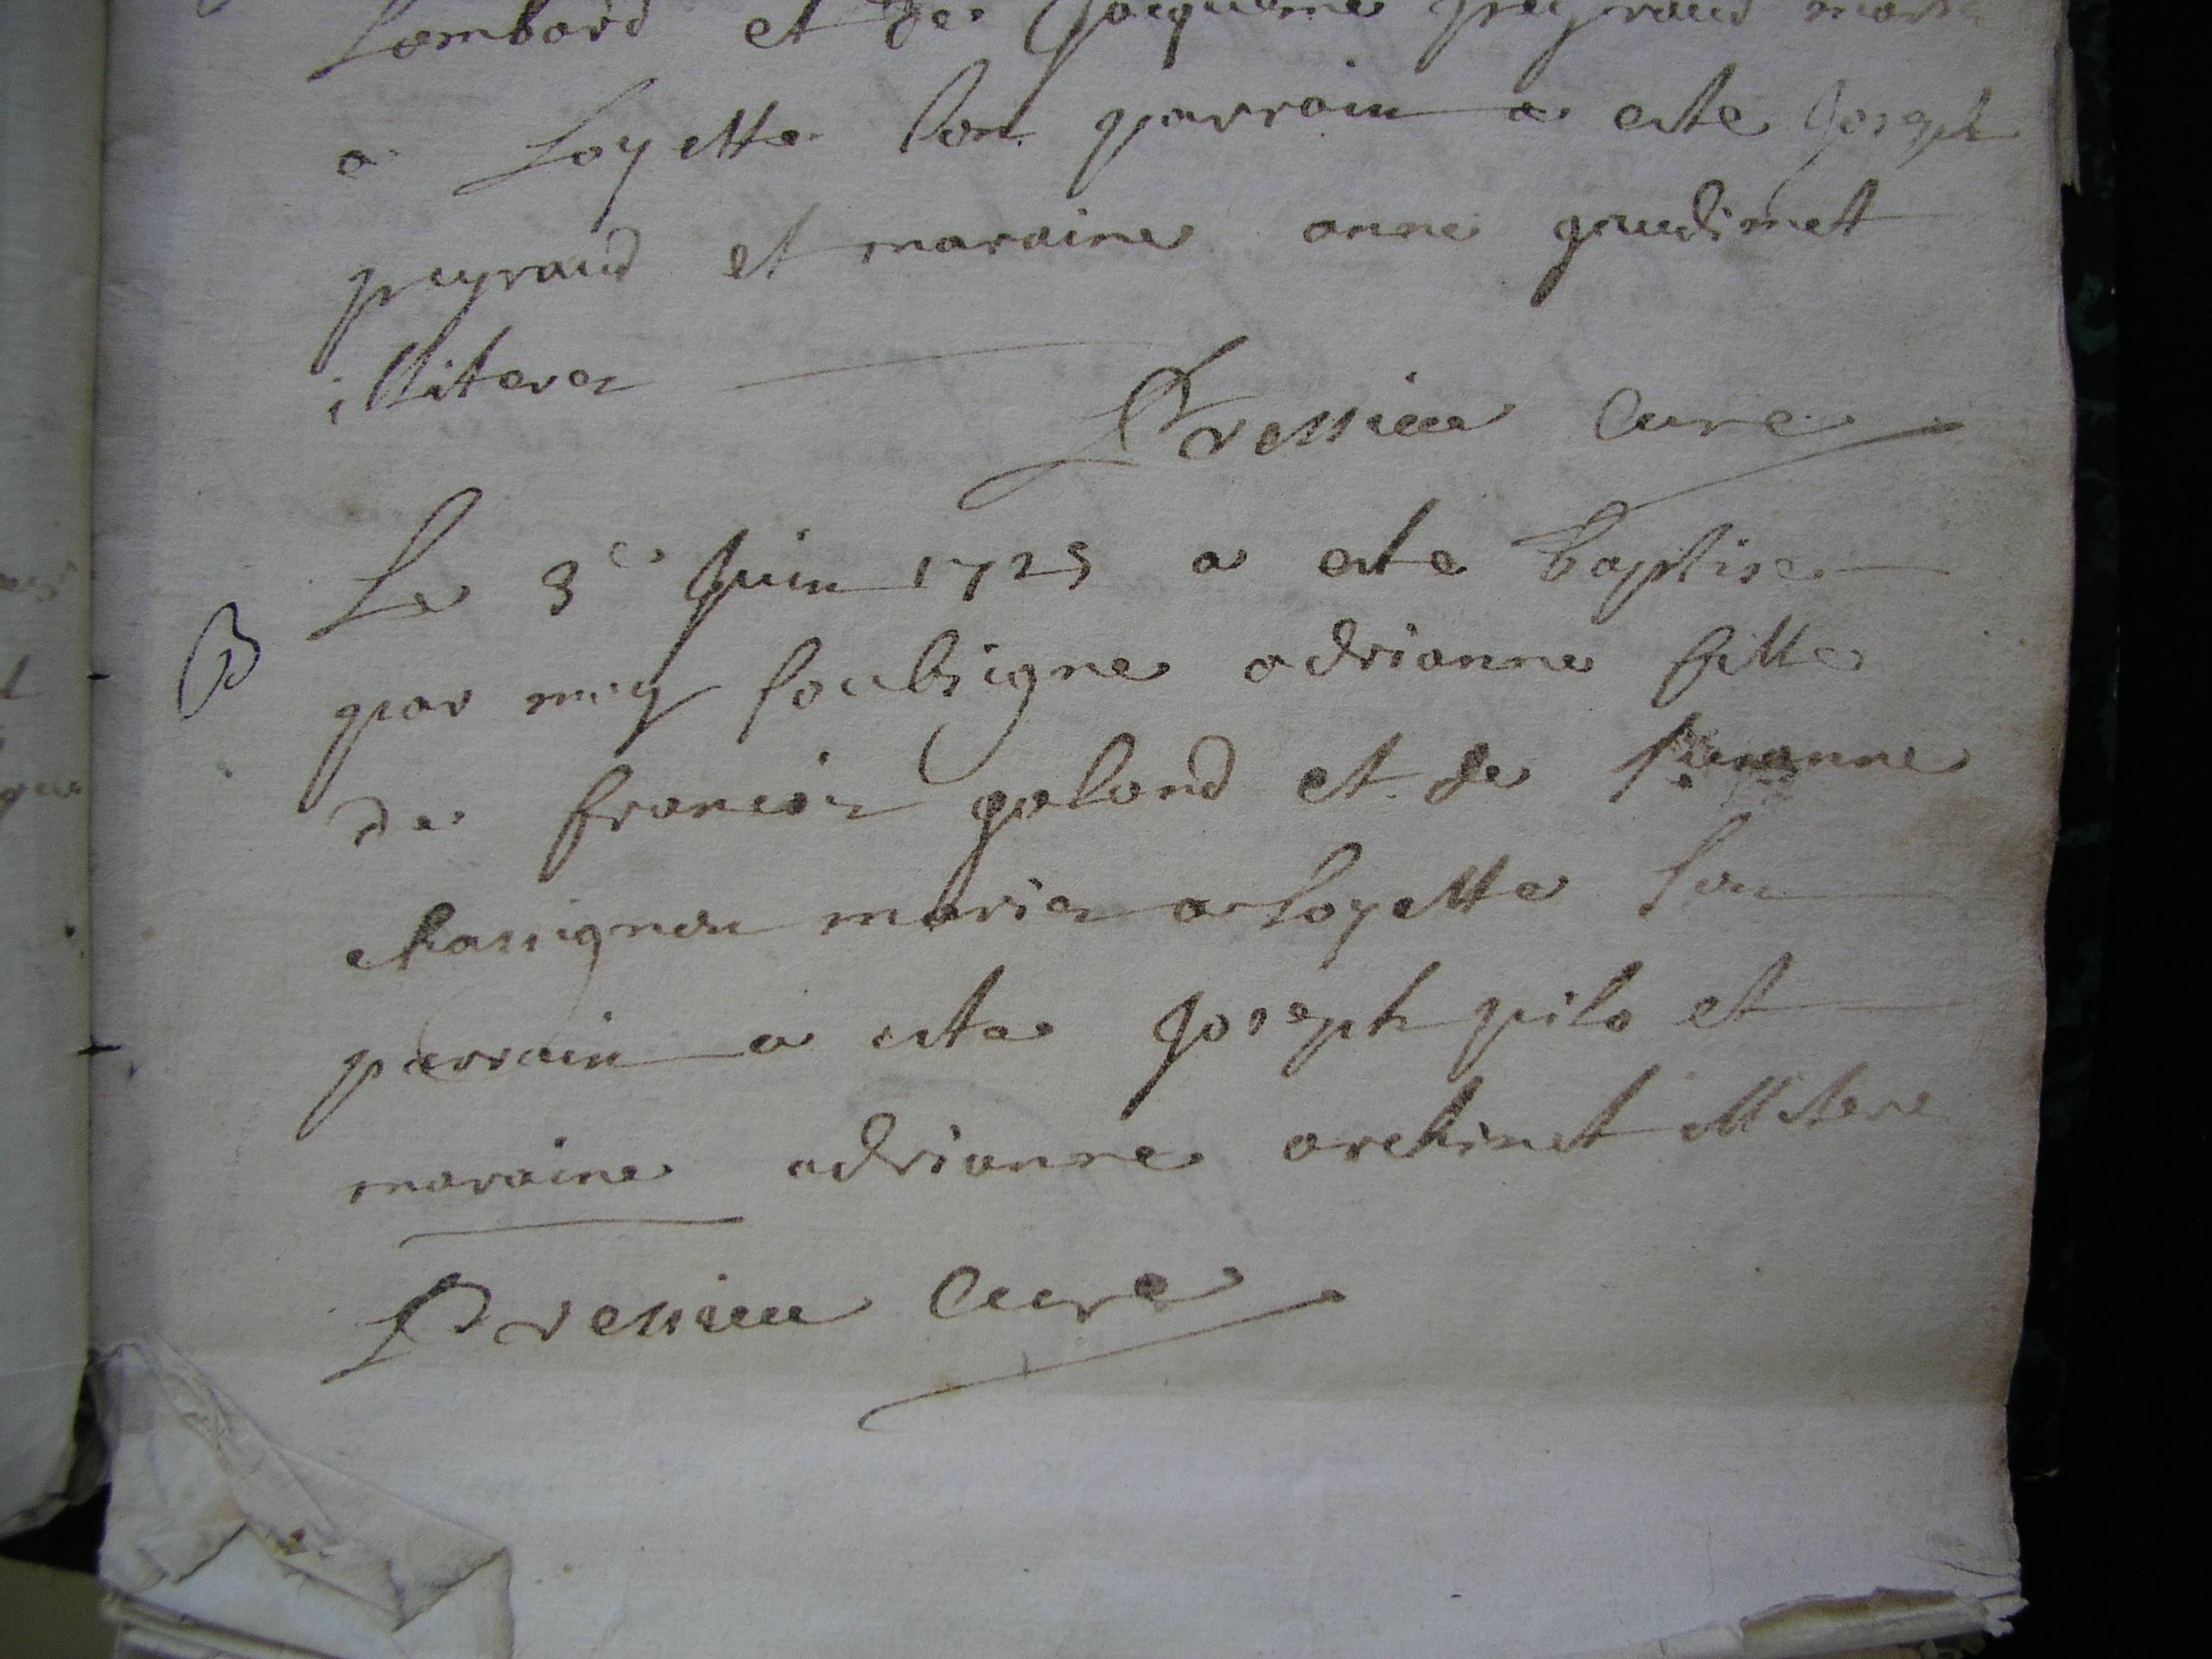 Lombard et de Jacqueme peyraud marie
a Loyette son parrain a este Joseph
peyraud et maraine anne gaudimet
illiteres
Dressieu Cure
Le 3e Juin 1725 a este baptisee
B
par moy soubsigne adrianne fille
de francois galand et de
chassignon maries a Loyette son
parrain a este Joseph pilo et
maraine adrianne archinet illitere
Dressieu Cure